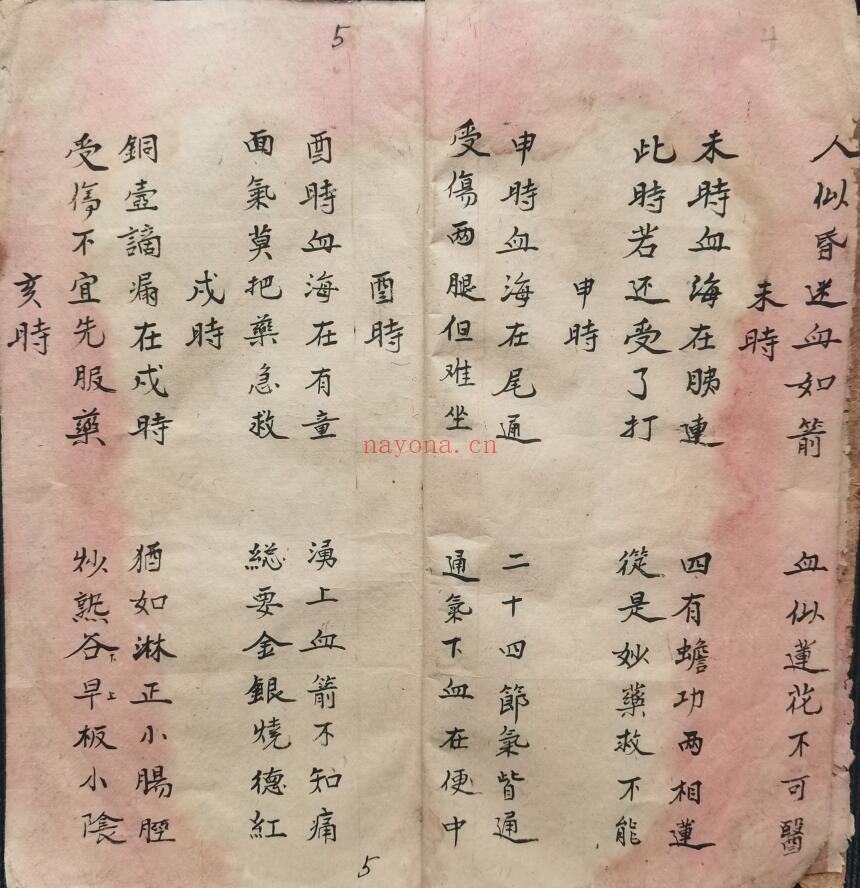 4
人似昏迷血如箭 血似蓮花不可醫
未時
未時血海在胰連 四有蟾功两相蓮
此時若还受了打 從是妙藥救不能
申時
申時血海在尾通 二十四節氣皆通
受傷两腿但难坐 通氣下血在便中
5
酉時
酉時血海在有童 湧上血箭不知痛
面氣莫把藥急救 総要金銀燒德紅
戍時
銅壺謫漏在戍時 猶如淋正小腸脛
受傷不宜先服藥 炒熟谷下早上板小陰
亥時
5
nayona.cn